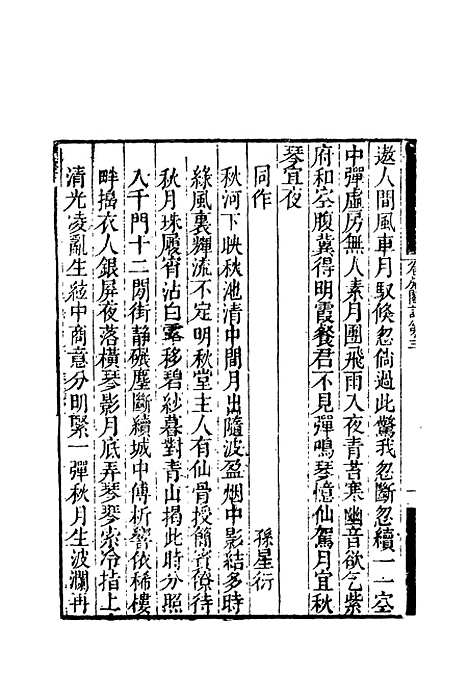 遨人間風車月馭倏忽倘過此驚我忽斷忽續一一空
中彈虛房無人素月團飛雨入夜青苔寒幽音欲乞紫
府和空腹冀得明霞餐君不見彈鳴琴憶仙駕月宜秋
琴宜夜
同作 孫星衍
秋河下映秋池清中間月出隨波盈烟中影結多時
綠風裏輝流不定明秋堂主人有仙骨授簡賓僚待
秋月珠履宵沾白露移碧紗暮對青山揭此時分照
入千門十二閒街靜碾塵斷續城中傳柝響依稀樓
畔搗衣人銀屏夜落橫琴影月底弄琴琴索冷指上
清光凌亂生絃中商意分明緊一彈秋月生波瀾再